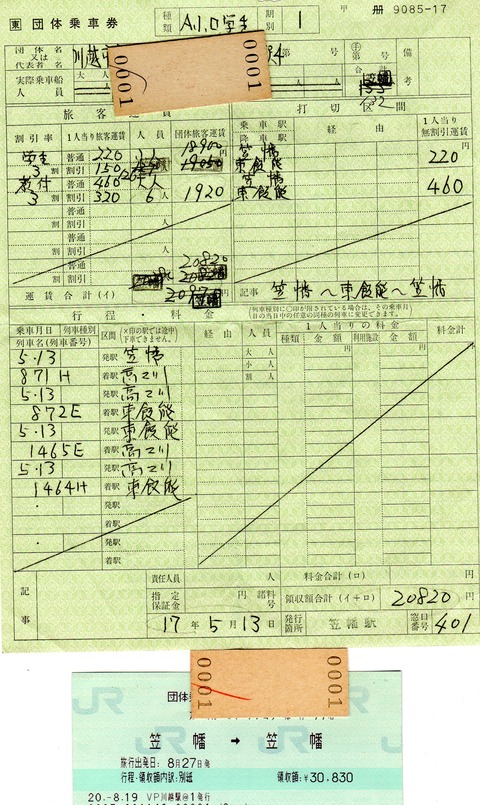 団体乗車券
種類
期別
1
甲 冊 9085-17
団体名
又は
代表者名
第 号
第 号
備考
実際乗車船
人員
大 人
小 人
合計
旅客運賃
打切区間
割引率
1人当り旅客運賃
人員
団体旅客運賃
乗車駅
降車駅
経由
1人当り
無割引運賃
普通 220
18900
笠幡
220円
3割
割引 150
東飯能
普通 460
大人
笠幡
460
3割
割引 320
6人
1920
東飯能
普通
割 割引
普通
割 割引
20820
普通
割 割引
運賃合計(イ)
記事 笠幡〜東飯能〜笠幡
行程・料金
乗車月日
列車種別
列車名(列車番号)
区間
(×印の駅では途中下車できません。)
経由
人員
1人当りの料金
種類
金額
利用施設
金額
料金計
5.13
発駅 笠幡
871H
着駅 高マリ川
5.13
発駅 高マリ川
872E
着駅 東飯能
5.13
発駅 東飯能
1465E
着駅 高マリ川
5.13
発駅 高マリ川
1464H
着駅 東飯能
発駅
着駅
発駅
着駅
記事
責任人員 人
料金合計(ロ) 円
指定保証金 円
諸料号
領収額合計(イ+ロ) 20820円
17年5月13日
発行箇所 笠幡駅
窓口番号 401
0001
0001
0001
0001
団体
笠幡 → 笠幡
旅行出発日: 8月27日発
行程・領収額内訳:別紙
領収額:¥30,830
20.-8.19 VP川越駅@1発行